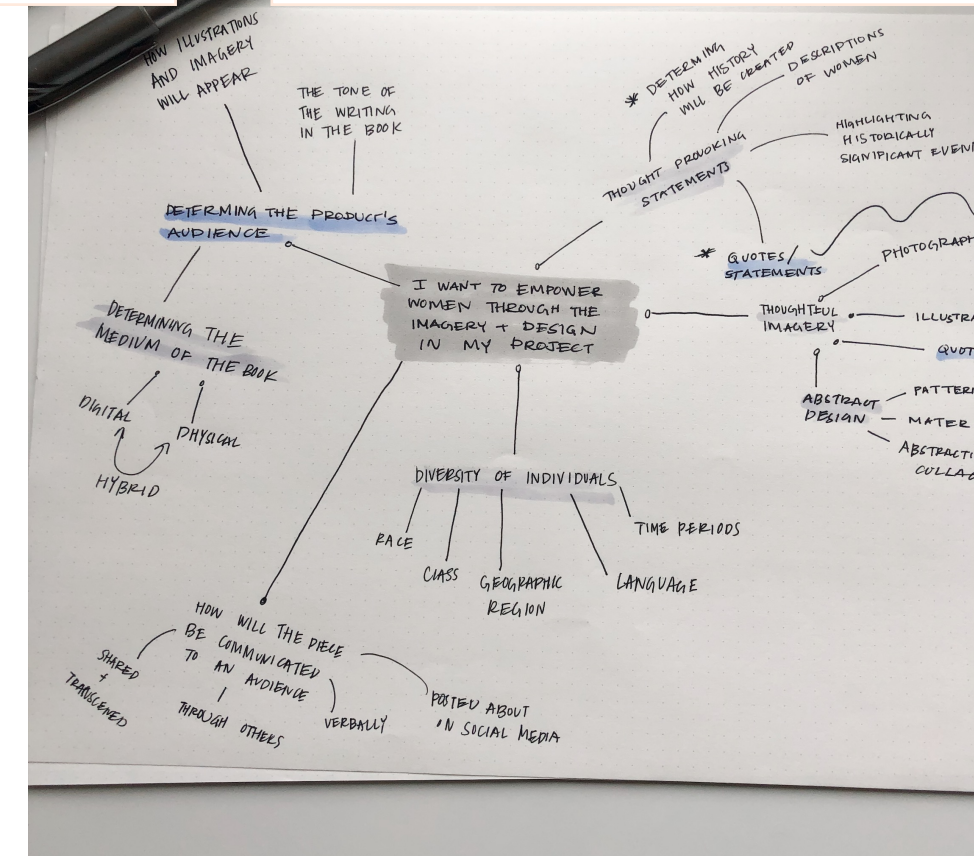 HOW ILLUSTRATIONS
AND IMAGERY
WILL APPEAR
THE TONE OF
THE WRITING
IN THE BOOK
DETERMING THE PRODUCT'S
AUDIENCE
DETERMINING THE
MEDIUM OF THE BOOK
DIGITAL
PHYSICAL
HYBRID
I WANT TO EMPOWER
WOMEN THROUGH THE
IMAGERY + DESIGN
IN MY PROJECT
* DETERMING
HOW HISTORY
WILL BE CREATED
DESCRIPTIONS
OF WOMEN
THOUGHT PROVOKING
STATEMENTS
HIGHLIGHTING
HISTORICALLY
SIGNIFICANT EVEN
* QUOTES/
STATEMENTS
THOUGHTFUL
IMAGERY
PHOTOGRAPH
ILLUSTRA
QUOT
ABSTRACT
DESIGN
PATTER
MATER
ABSTRACTI
COLLAG
DIVERSITY OF INDIVIDUALS
RACE
CLASS
GEOGRAPHIC
REGION
LANGUAGE
TIME PERIODS
HOW WILL THE PIECE
BE COMMUNICATED
TO AN AUDIENCE
SHARED
+
TRANSCENED
THROUGH OTHERS
VERBALLY
POSTED ABOUT
ON SOCIAL MEDIA